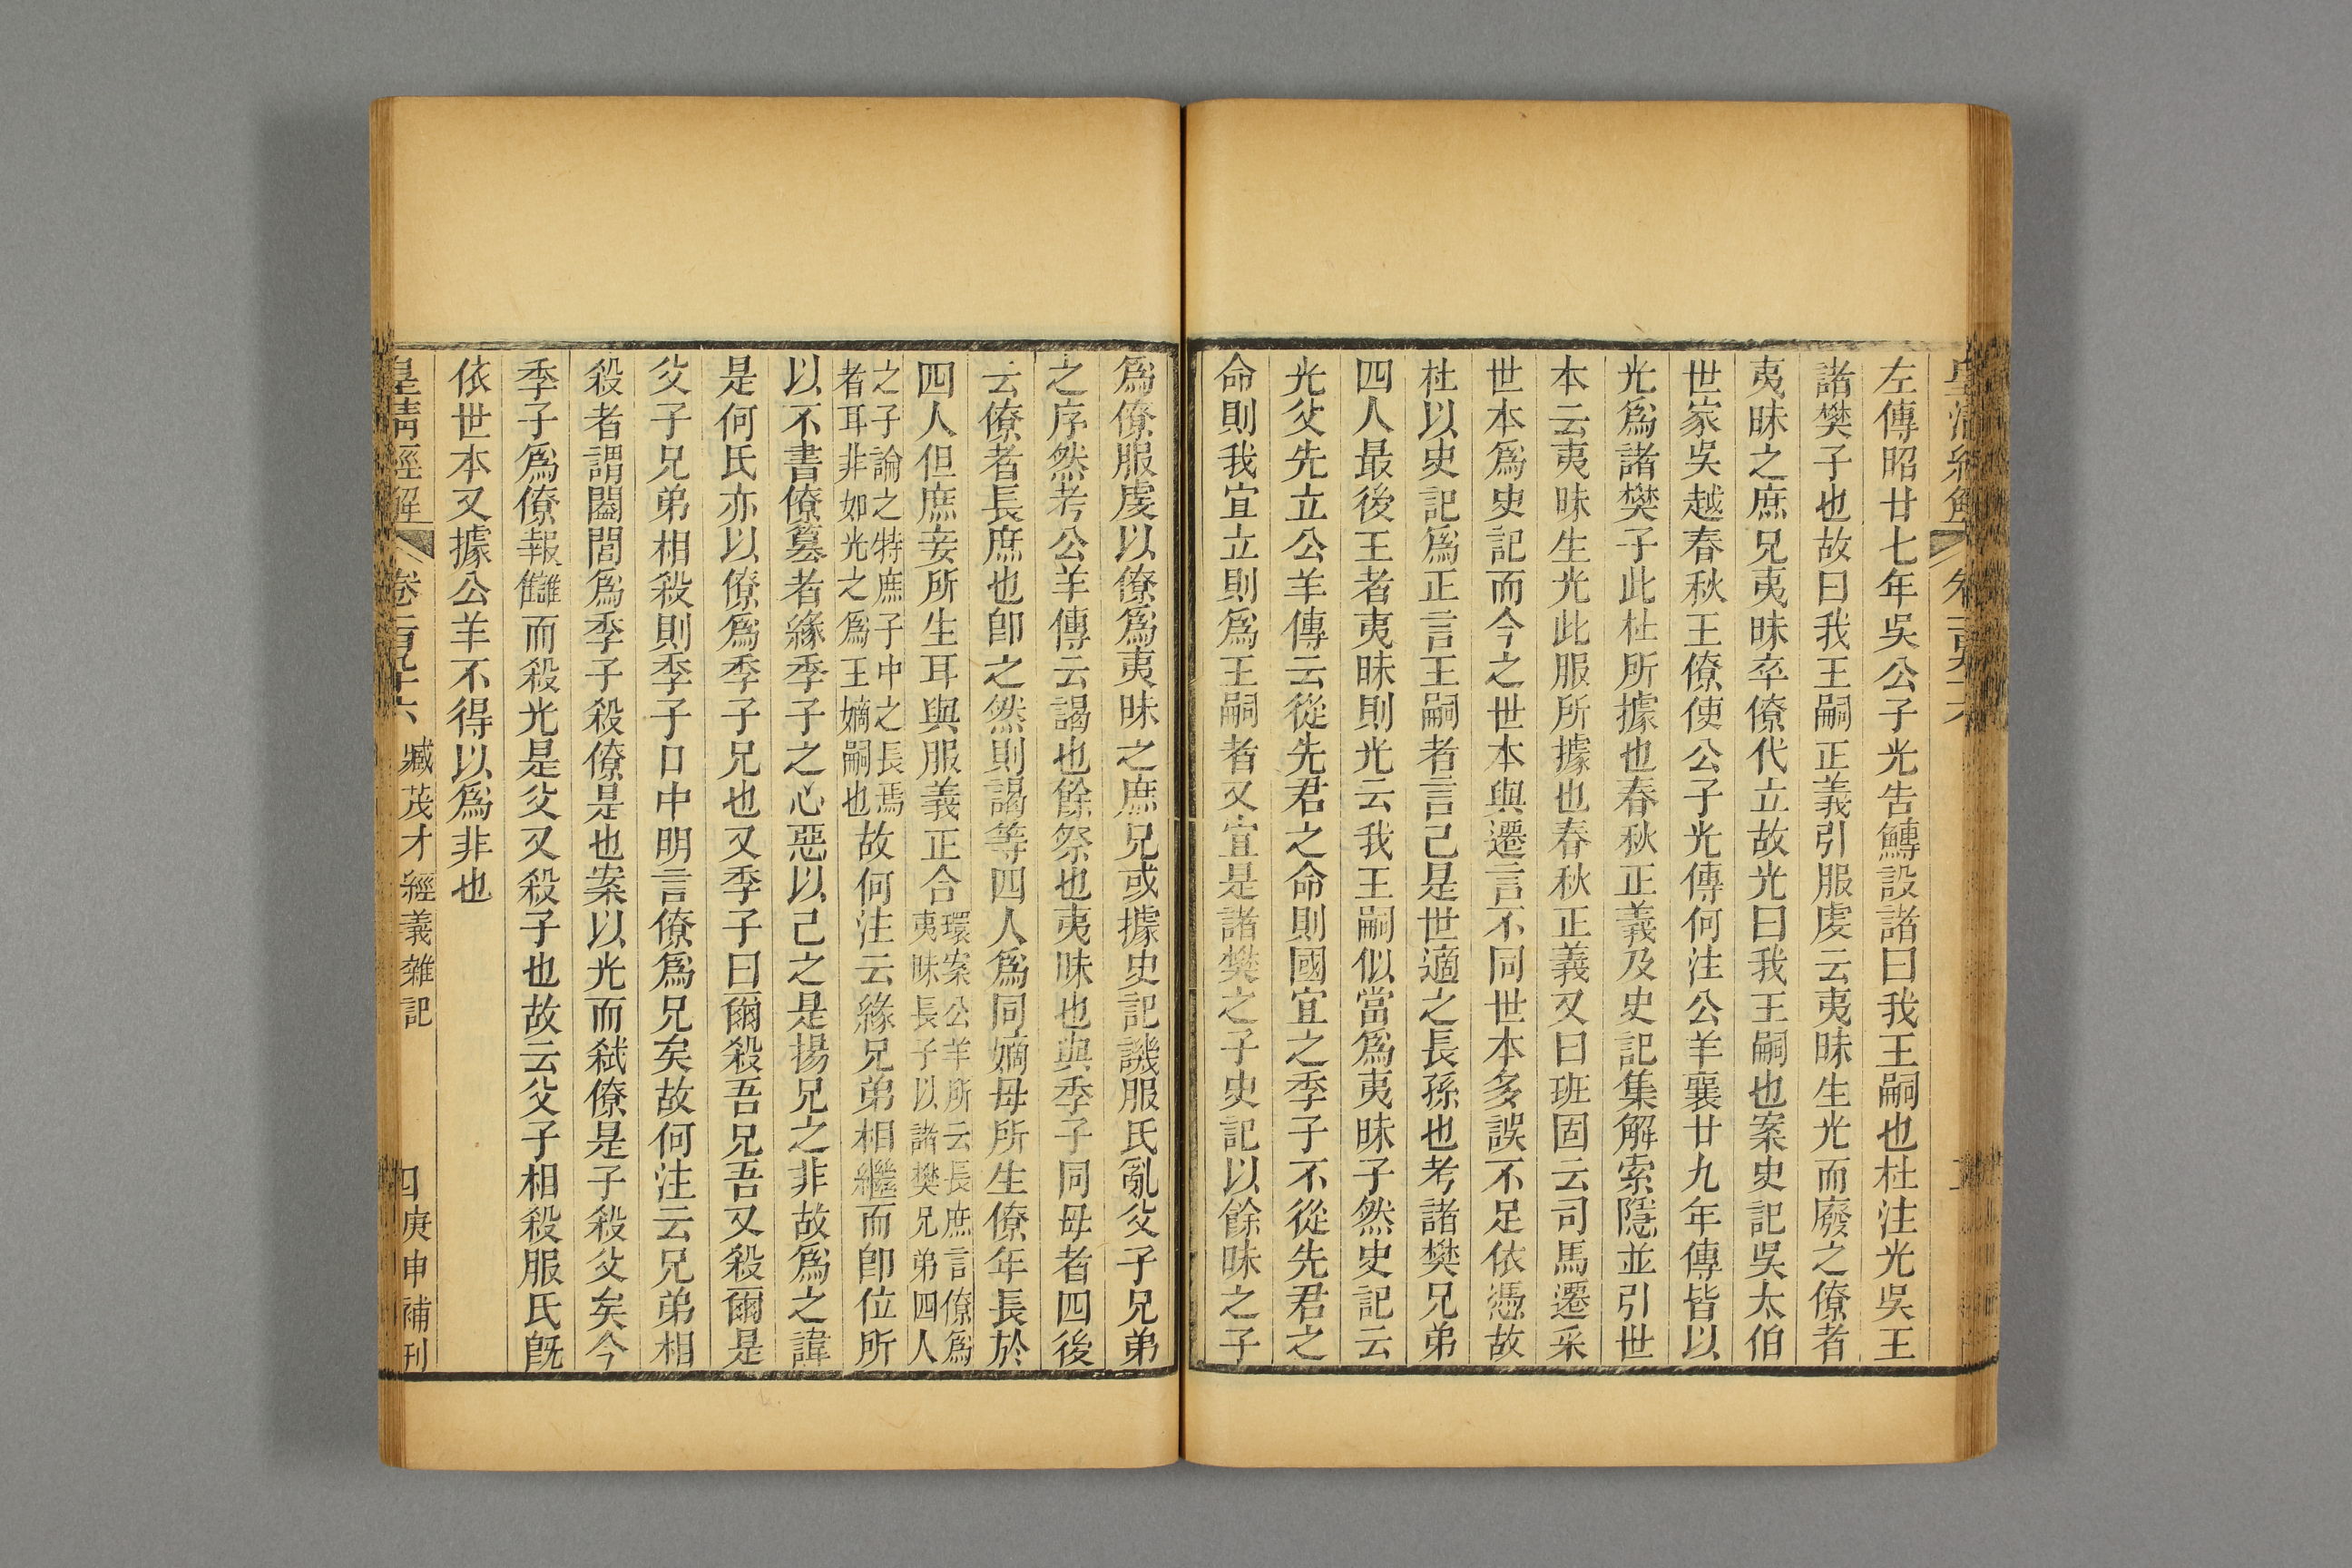 左傳昭廿七年吳公子光告鱄設諸曰我王嗣也杜注光吳王
諸樊子也故曰我王嗣正義引服虔云夷昧生光而廢之僚者
夷昧之庶兄夷昧卒僚代立故光曰我王嗣也案史記吳太伯
世家吳越春秋王僚使公子光傳何注公羊襄廿九年傳皆以
光爲諸樊子此杜所據也春秋正義及史記集解索隱並引世
本云夷昧生光此服所據也春秋正義又曰班固云司馬遷采
世本爲史記而今之世本與遷言不同世本多誤不足依憑故
杜以史記爲正言王嗣者言己是世適之長孫也考諸樊兄弟
四人最後王者夷昧則光云我王嗣似當爲夷昧子然史記云
光父先立公羊傳云從先君之命則國宜之季子不從先君之
命則我宜立則爲王嗣者又宜是諸樊之子史記以餘昧之子
爲僚服虔以僚爲夷昧之庶兄或據史記譏服氏亂父子兄弟
之序然考公羊傳云謁也餘祭也夷昧也與季子同母者四後
云僚者長庶也卽之然則謁等四人爲同嫡母所生僚年長於
四人但庶妾所生耳與服義正合環案公羊所云長庶言僚爲
夷昧長子以諸樊兄弟四人
之子論之特庶子中之長焉
者耳非如光之爲王嫡嗣也故何注云緣兄弟相繼而卽位所
以不書僚篡者緣季子之心惡以己之是揚兄之非故爲之諱
是何氏亦以僚爲季子兄也又季子曰爾殺吾兄吾又殺爾是
父子兄弟相殺則季子口中明言僚爲兄矣故何注云兄弟相
殺者謂闔閭爲季子殺僚是也案以光而弒僚是子殺父矣今
季子爲僚報讎而殺光是父又殺子也故云父子相殺服氏旣
依世本又據公羊不得以爲非也
皇清經解 卷一百九十六 臧茂才經義雜記 四 庚申補刊